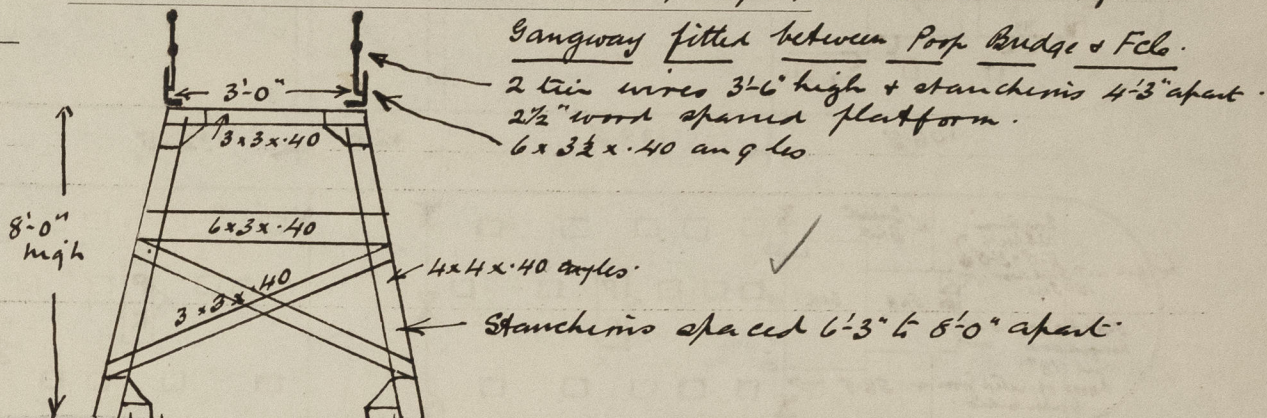 Gangway fitted between Poop Bridge & Fcle.
2 tier wires 3'-6" high & stanchions 4'-3" apart.
2½" wood sparred platform.
6 x 3½ x .40 angles
3'-0"
3 x 3 x .40
8'-0"
high
6 x 3 x .40
3 x 3 x .40
4 x 4 x .40 angles.
Stanchions spaced 6'-3" to 8'-0" apart.